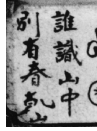 誰識山中
別有春